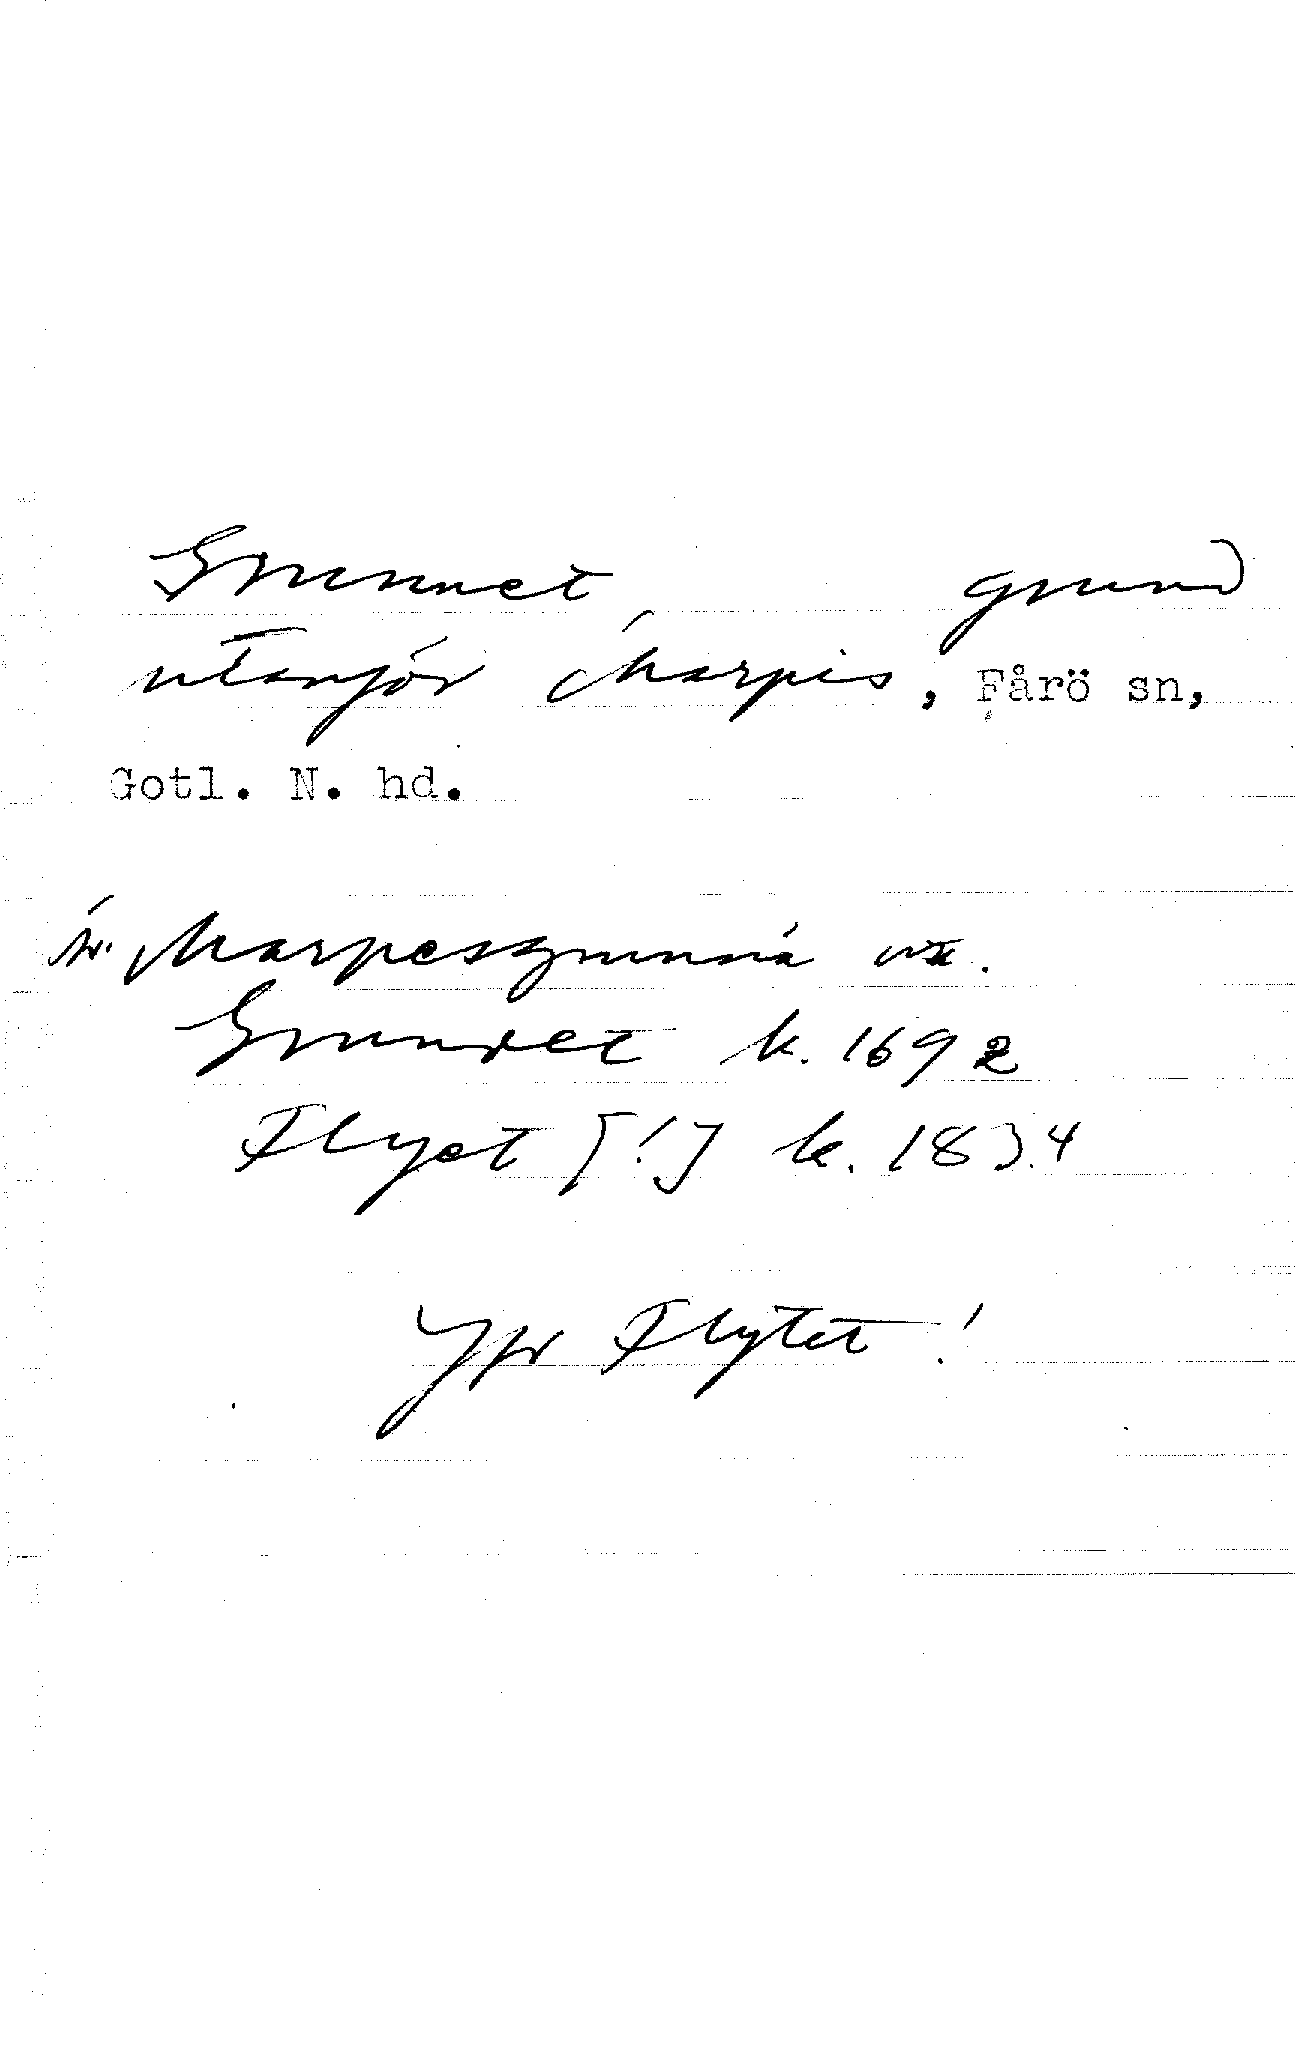 Grunnet, grund
utanför Marpis, Fårö sn,
Gotl. N. hd.
Äv. Marpesgrunna
Grundet k. 1692
Flyet [!] k. 183.4
Jfr Flytet!